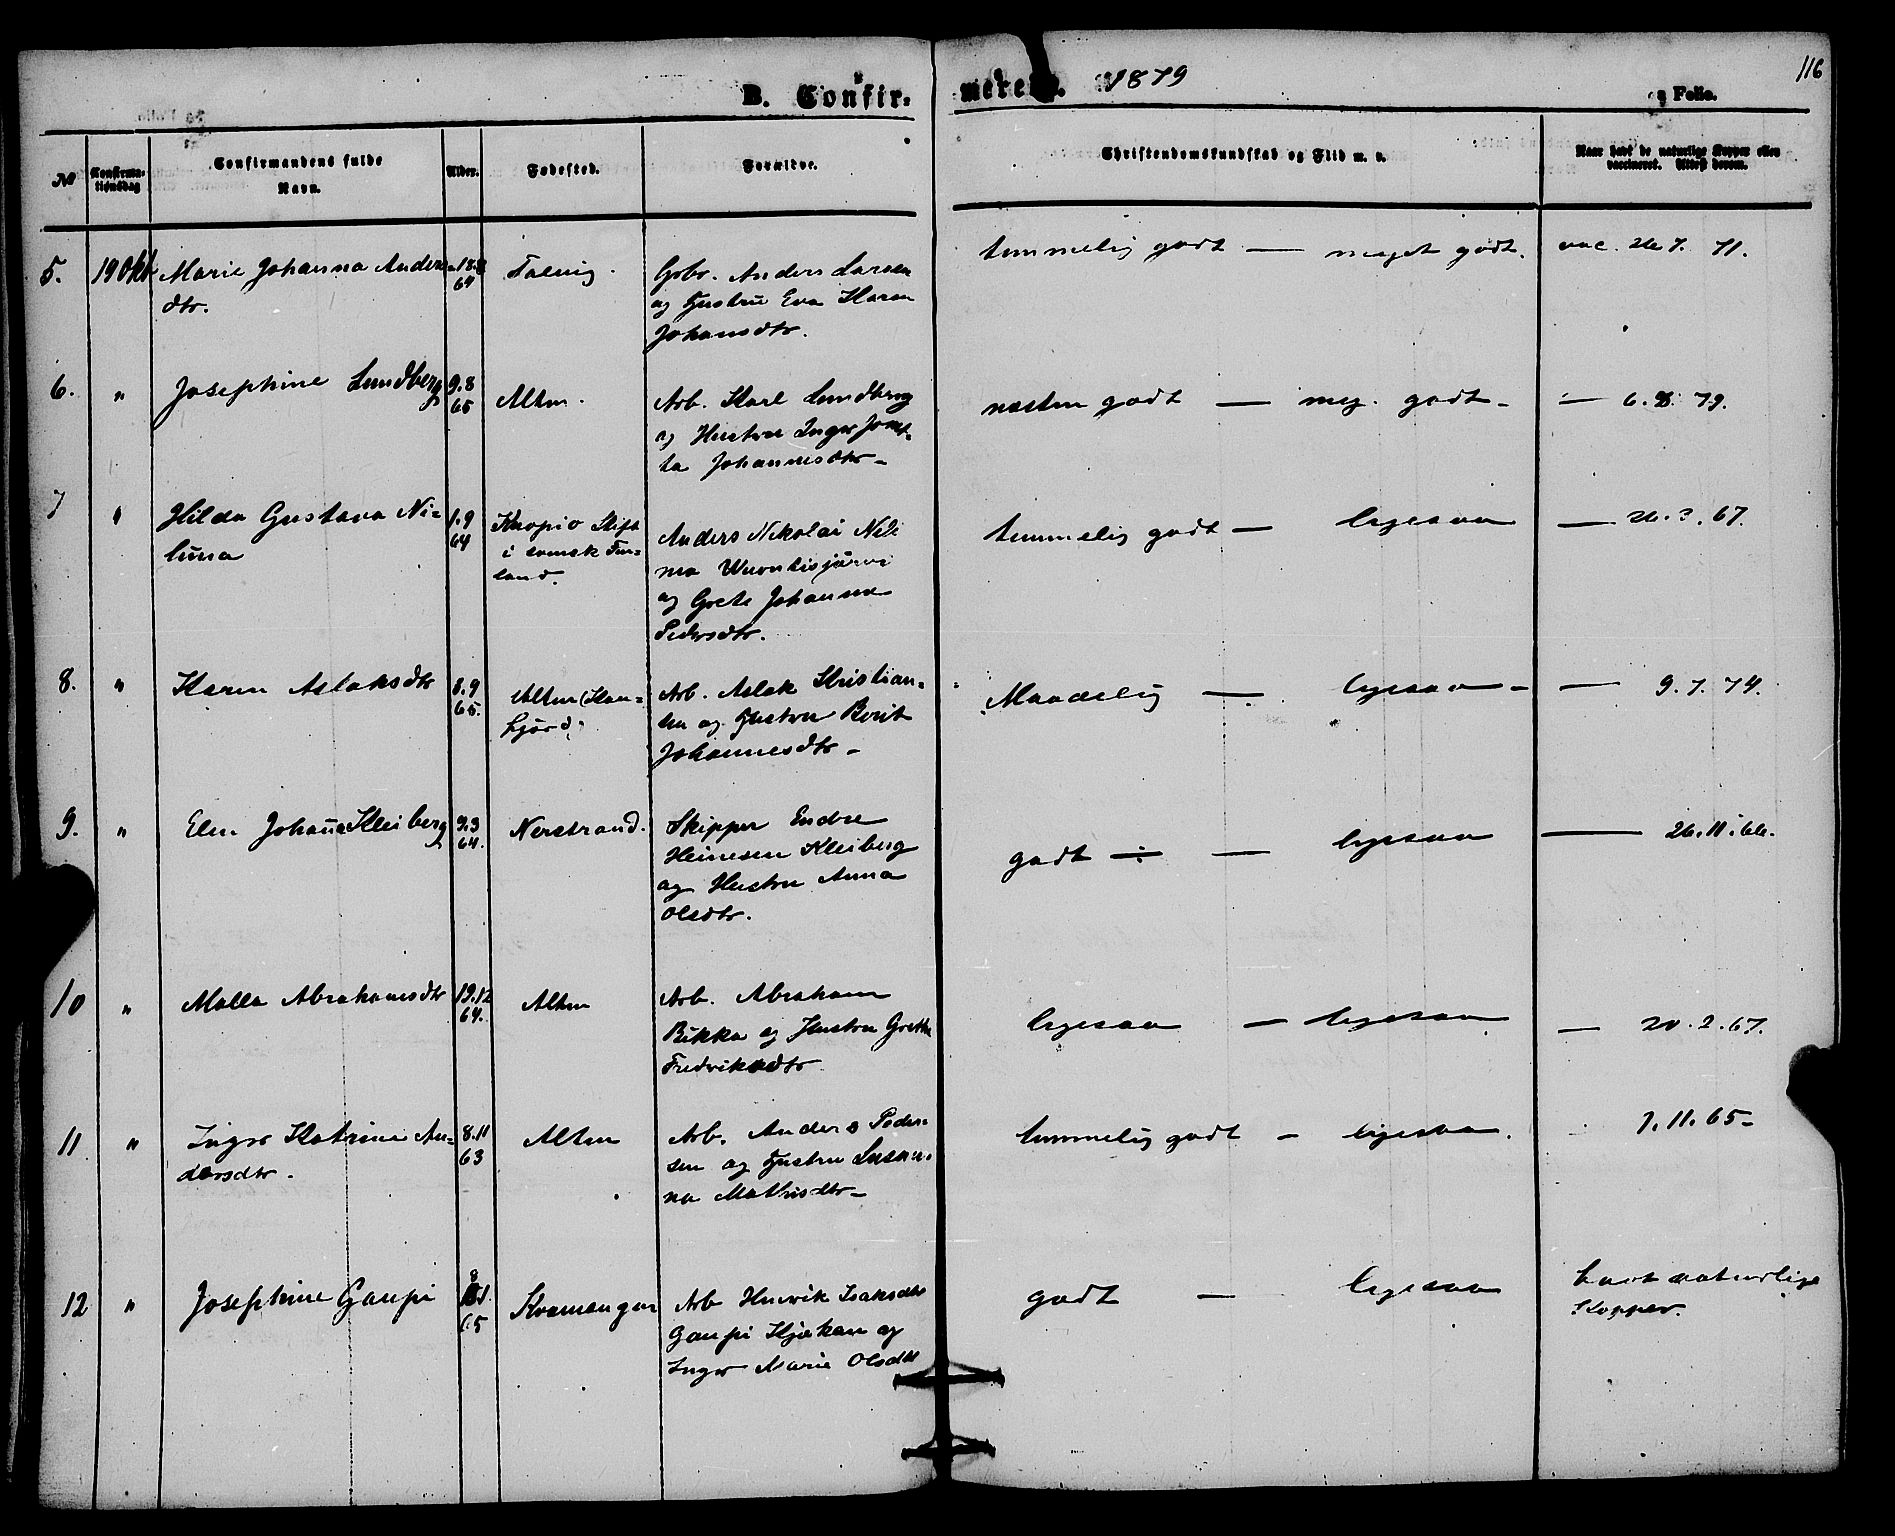 B. Confirmerede. 1879
og Folio.
116
№
Konfirmationsdag
Confirmandens fulde Navn.
Alder.
Fødested.
Forældre.
Christendomskundskab og Flid m. v.
Naar havt de naturlige Kopper eller vaccineret. Attest derom.
5.
19 Okt
Marie Johanna Anders
dtr.
64
Gbr. Anders Larsen
og Hustru Eva Karen
Johansdtr.
temmelig godt — meget godt.
vac. 26.7. 71.
6.
"
Josephine Lundberg
9.8
65
Alten.
Arb. Karl Lundberg
og Hustru Inger
ta Johannesdtr.
næsten godt — meg. godt
— 6. 8. 79.
7
"
Hilda Gustava Ni=
luna
1.9
64
Kuopio Stift
i svensk Fin=
land.
Anders Nikolai
ma
og Greta Johanna
Pedersdtr.
temmelig godt — ligesaa
— 26.3. 67.
8.
"
Karen Aslaksdtr
8.9
65.
Alten (Kaa=
fjord)
Arb. Aslak Kristian=
sen og Hustru Berit
Johannesdtr
Maadelig — ligesaa
— 9. 7. 74.
9.
"
Elen Johaña Kleiberg
9.3
64.
Nerstrand.
Skipper Endre
Heinesen Kleiberg
og Hustru Anna
Olsdtr.
godt — ligesaa
— 26.11.66.
10
"
Malla Abrahamsdtr
19.12
64.
Alten
Arb. Abraham
Bikka og Hustru Grethe
Fredriksdtr
ligesaa — ligesaa
— 20. 2. 67.
11
"
Inger Katrine An=
dersdtr.
8.11
63
Alten
Arb. Anders Peder=
sen og Hustru Susan=
na Mathisdtr
temmelig godt — ligesaa.
7. 11. 65
12
"
Josephine Gaupi
65
Kvænangen
Arb Henrik Isaksen
Gaupi Kjækan og
Inger Marie Olsdtr
godt — ligesaa
havt naturlige
Kopper.